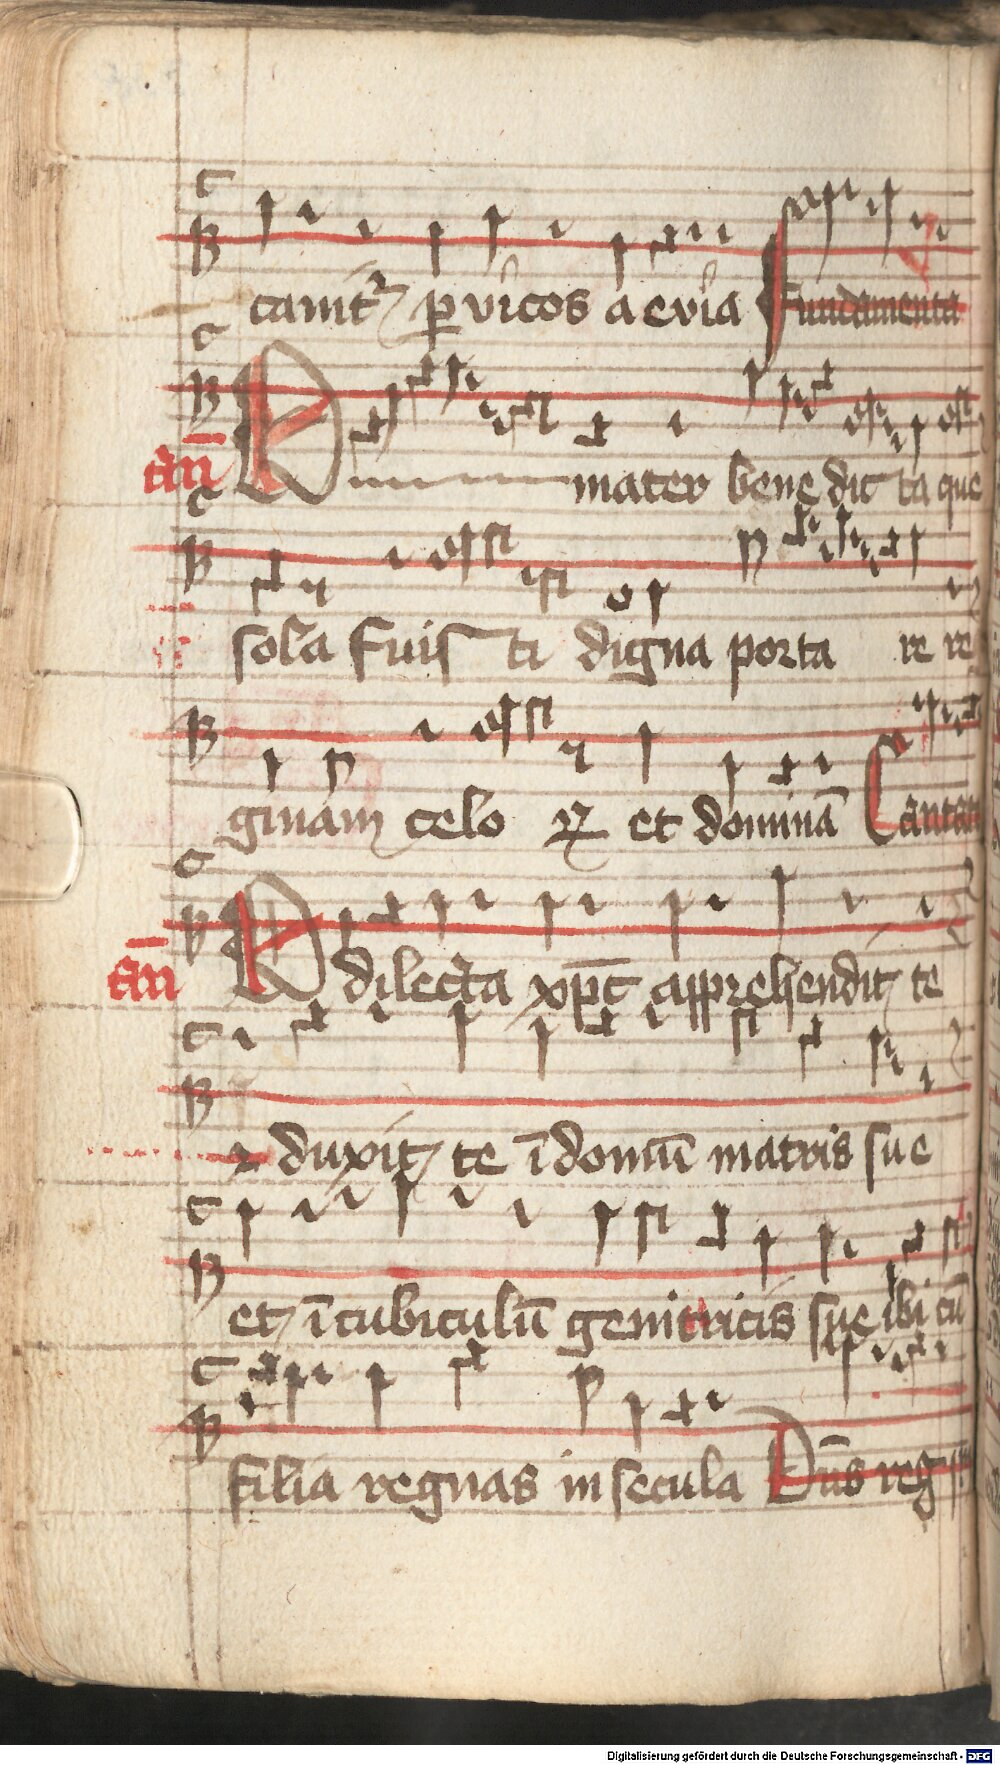 canit᷒ ꝑ vicos aevia Fundamenta
an̄ O mater bene dic ta que
sola fuis ti digna porta re re
ginam celo ꝝ et dominā Cantate
an̄ O dilecta xp̄c apprehendit te
⁊ duxit te ī domū matris sue
et ī cubiculū genitricis sue ibi cū
filia regnas in secula Dn̄s reg
Digitalisierung gefördert durch die Deutsche Forschungsgemeinschaft - DFG